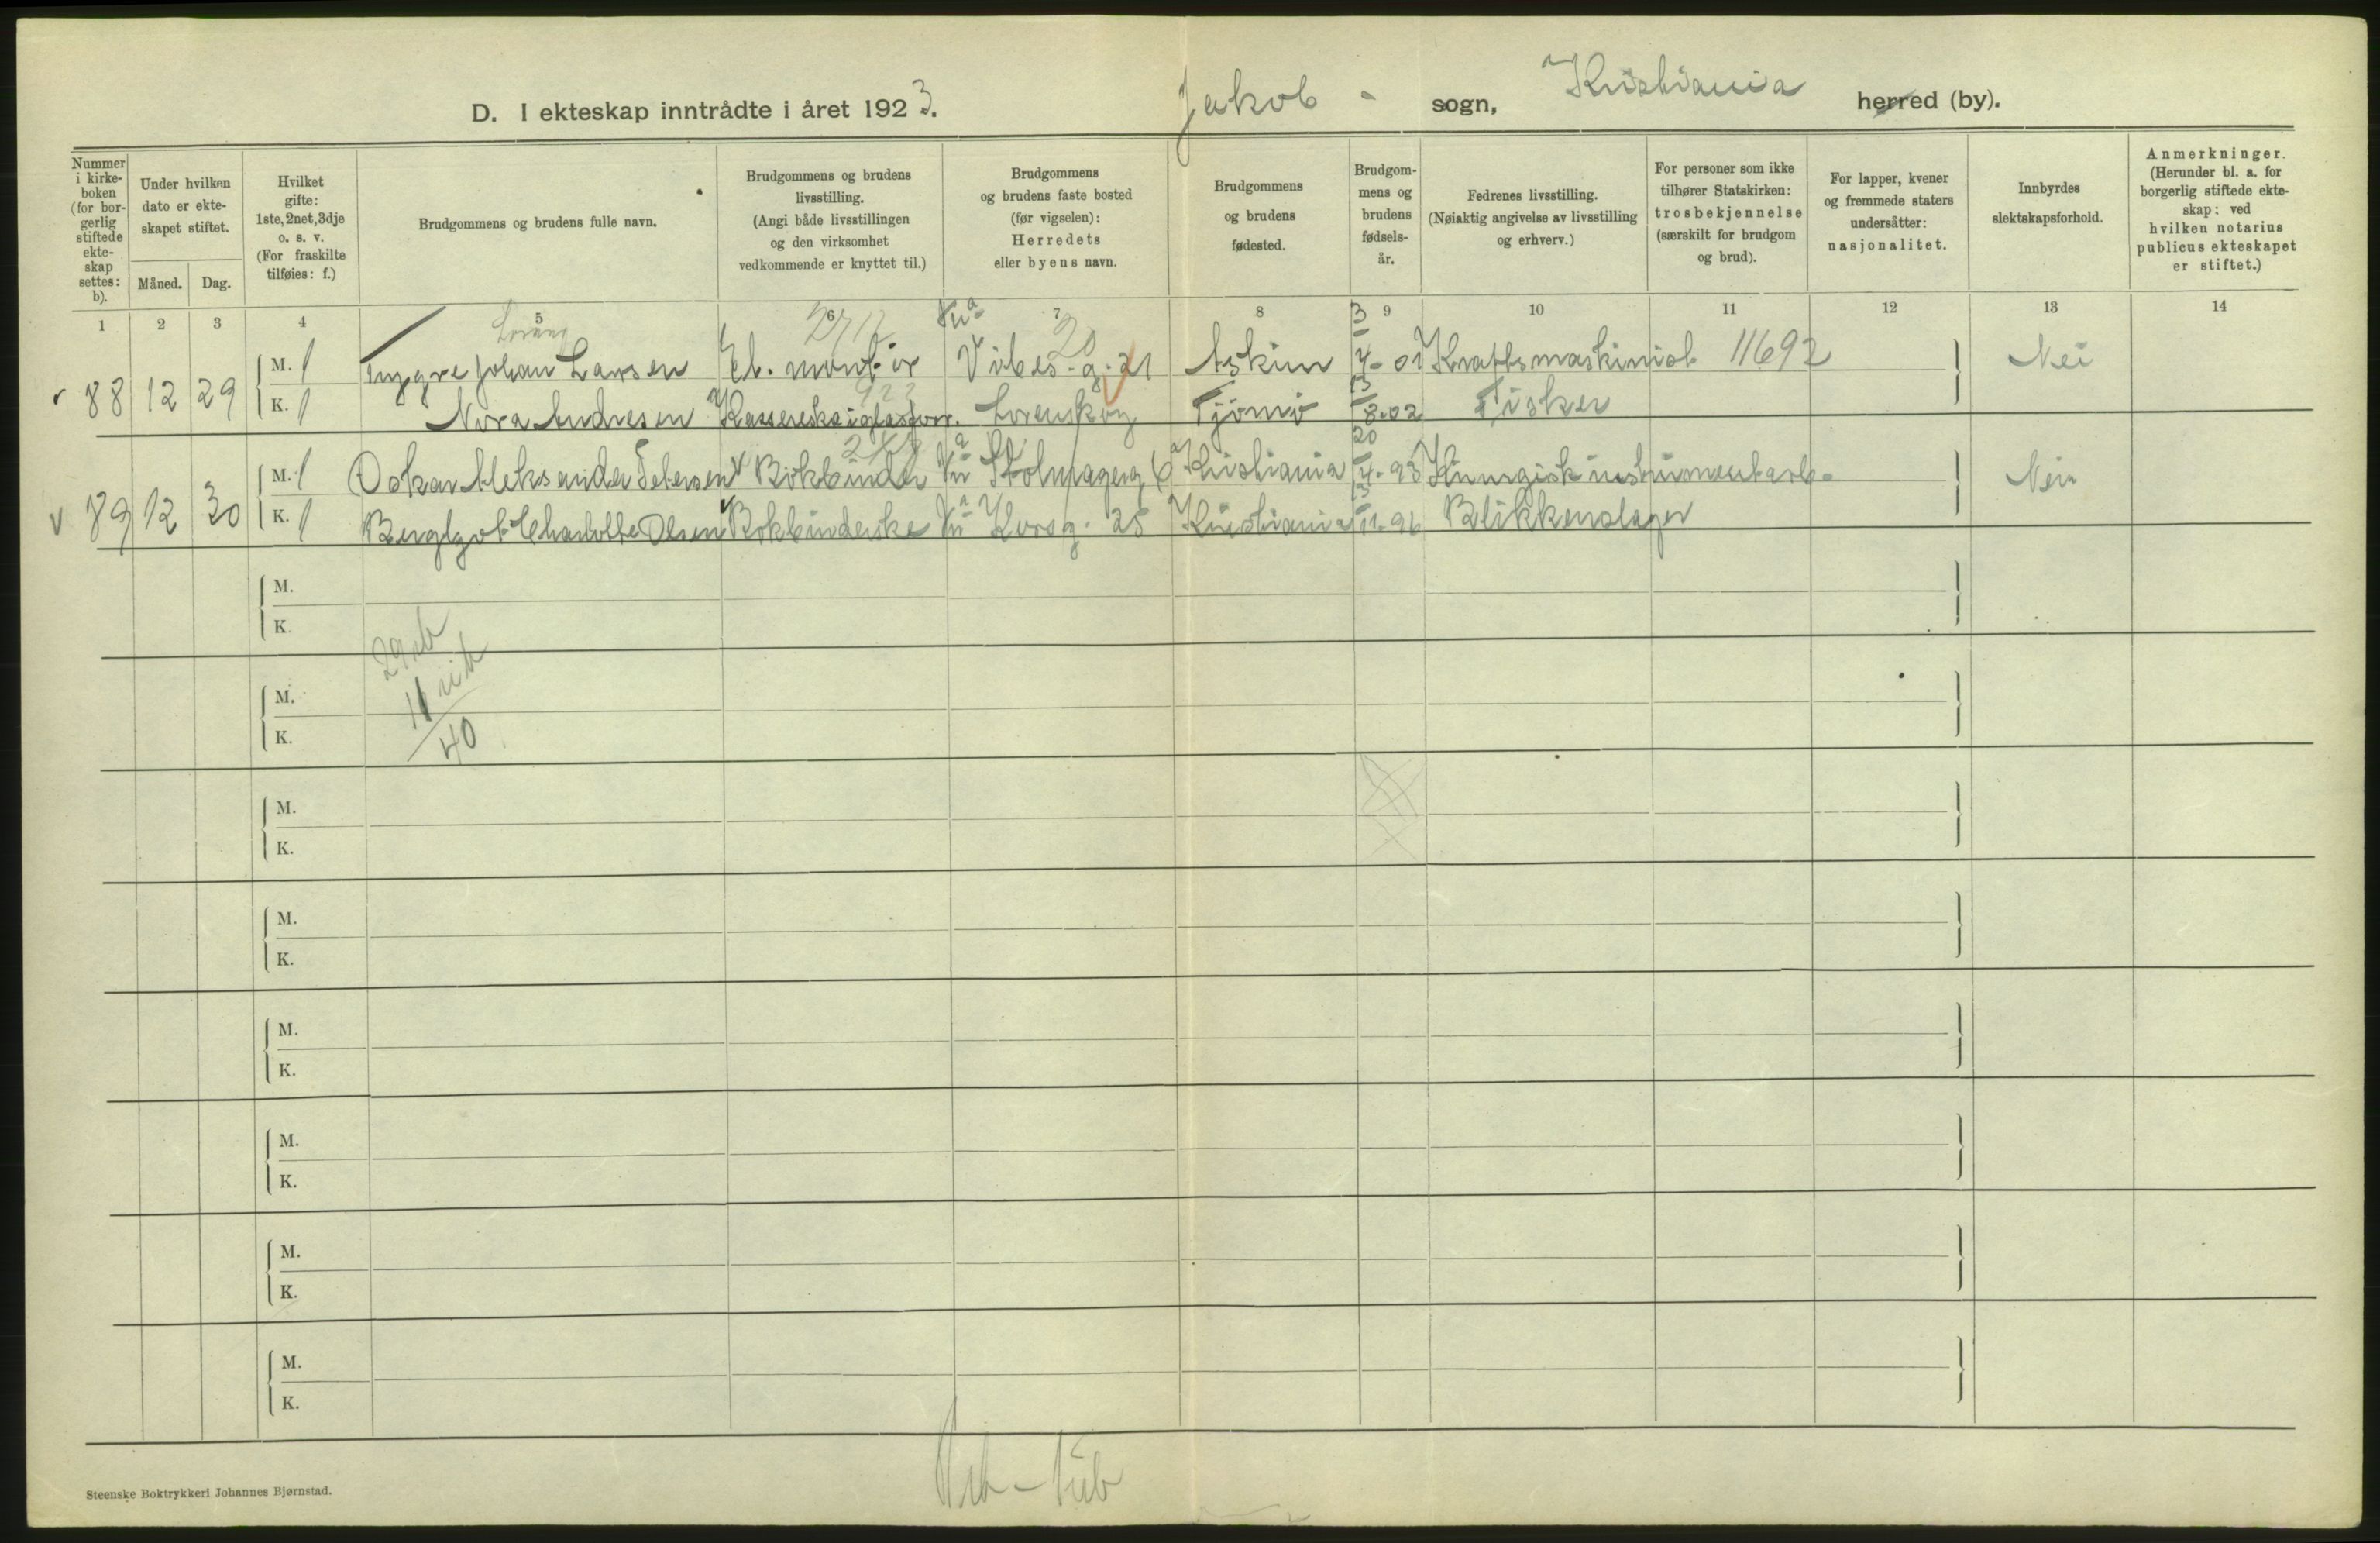 D. I ekteskap inntrådte i året 1923. Jakob - sogn, Kristiania herred (by).
Nummer i kirke-boken (for bor-gerlig stiftede ekte-skap settes: b).
Under hvilken dato er ekte-skapet stiftet.
Måned. Dag.
Hvilket gifte: 1ste, 2net, 3dje o. s. v. (For fraskilte tilføies: f.)
Brudgommens og brudens fulle navn.
Brudgommens og brudens livsstilling. (Angi både livsstillingen og den virksomhet vedkommende er knyttet til.)
Brudgommens og brudens faste bosted (før vigselen): Herredets eller byens navn.
Brudgommens og brudens fødested.
Brudgom-mens og brudens fødsels-år.
Fedrenes livsstilling. (Nøiaktig angivelse av livsstilling og erhverv.)
For personer som ikke tilhører Statskirken: trosbekjennelse (særskilt for brudgom og brud).
For lapper, kvener og fremmede staters undersåtter: nasjonalitet.
Innbyrdes slektskapsforhold.
Anmerkninger. (Herunder bl. a. for borgerlig stiftede ekte-skap: ved hvilken notarius publicus ekteskapet er stiftet.)
1 2 3 4 5 6 7 8 9 10 11 12 13 14
88 12 29 M. 1 Tryggve Johan Larsen El. montör Kria Vibes-g. 21 Askim 3/4-01 Kraftsmaskinist 11692 Nei
K. 1 Nora Andresen Kassererske i glasforr. Lorenskog Tjömö 13/8-02 Fisker
89 12 30 M. 1 Oskar Aleksander Petersen Bokbinder Kria Stolmagerg. 6 Kristiania 20/4-93 Kirurgisk instrumentarb. Nei
K. 1 Bergljot Charlotte Olsen Bokbinderske Kria Korsg. 25 Kristiania 11-96 Blikkenslager
M.
K.
29 ib
11 uib
40
M.
K.
M.
K.
M.
K.
M.
K.
M.
K.
M.
K.
M.
K.
Steenske Boktrykkeri Johannes Bjørnstad.